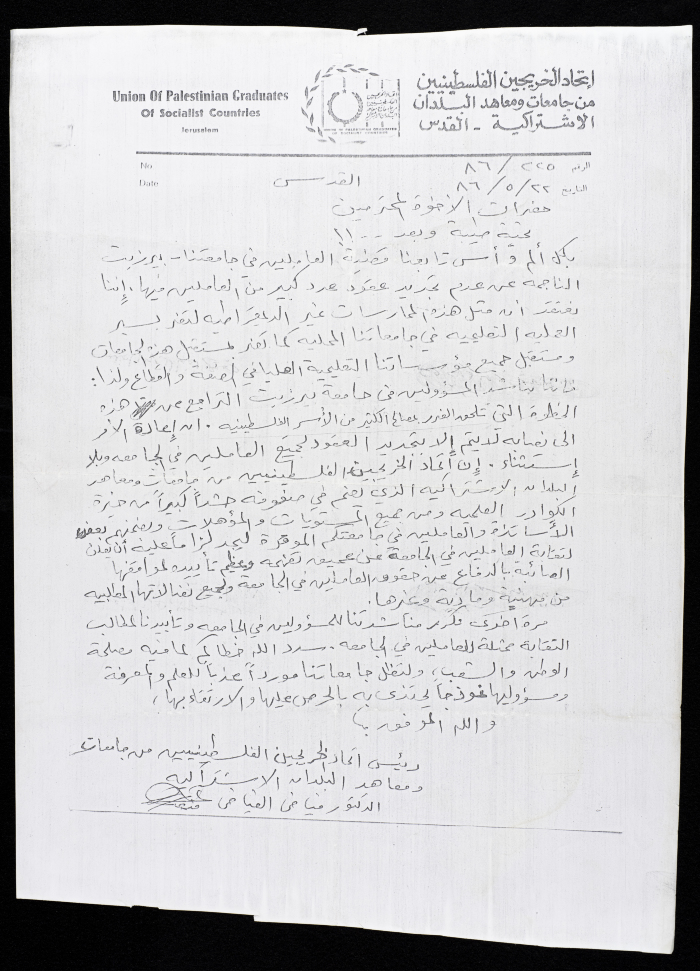 Union Of Palestinian Graduates
Of Socialist Countries
Jerusalem
إتحاد الخريجين الفلسطينيين
من جامعات ومعاهد البلدان
الاشتراكية - القدس
No
Date
الرقم ٢٢٥/٨٦
القدس التاريخ ٢٢/٥/٨٦
حضرات الأخوة المحترمين
تحية طيبة وبعد ..!!
بكل ألم وأسى تابعنا قضية العاملين في جامعتنا - بيرزيت
الناجمة عن عدم تجديد عقود عدد كبير من العاملين فيها. إننا
نعتقد ان مثل هذه الممارسات غير الديمقراطية تضر بسير
العملية التعليمية في جامعاتنا المحلية كما تضر لمستقبل هذه الجامعات
ومستقبل جميع مؤسساتنا التعليمية العليا في الضفة والقطاع ولذا:
فإننا نناشد المسؤولين في جامعة بيرزيت التراجع عن هذه
الخطوة التي تلحق الضرر بمصالح الكثير من الأسر الفلسطينية. ان إعادة الأمر
الى نصابه لا يتم إلا بتجديد العقود لجميع العاملين في الجامعة وبلا
إستثناء. إن إتحاد الخريجين الفلسطينيين من جامعات ومعاهد
البلدان الاشتراكية الذي يضم في صفوفه حشداً كبيراً من خيرة
الكوادر العلمية ومن جميع المستويات والمؤهلات وبضمنهم بعض
الأساتذة والعاملين في جامعتكم الموقرة ليجد لزاماً عليه أن يعلن
لنقابة العاملين في الجامعة عن عميق تضامنه وعظيم تأييده لمواقفها
الصائبة بالدفاع عن حقوق العاملين في الجامعة ولجميع نضالاتها المطلبية
من مهنية ومادية وغيرها.
مرة أخرى نكرر مناشدتنا للمسؤولين في الجامعة وتأييدنا لمطالب
النقابة ممثلة للعاملين في الجامعة. سدد الله خطاكم لما فيه مصلحة
الوطن والشعب، ولتظل جامعاتنا مورداً عذباً للعلم والمعرفة
ومسؤوليها نموذجاً يحتذى به بالحرص عليها والارتقاء بها،
والله الموفق
رئيس اتحاد الخريجين الفلسطينيين من جامعات
ومعاهد البلدان الاشتراكية
الدكتور